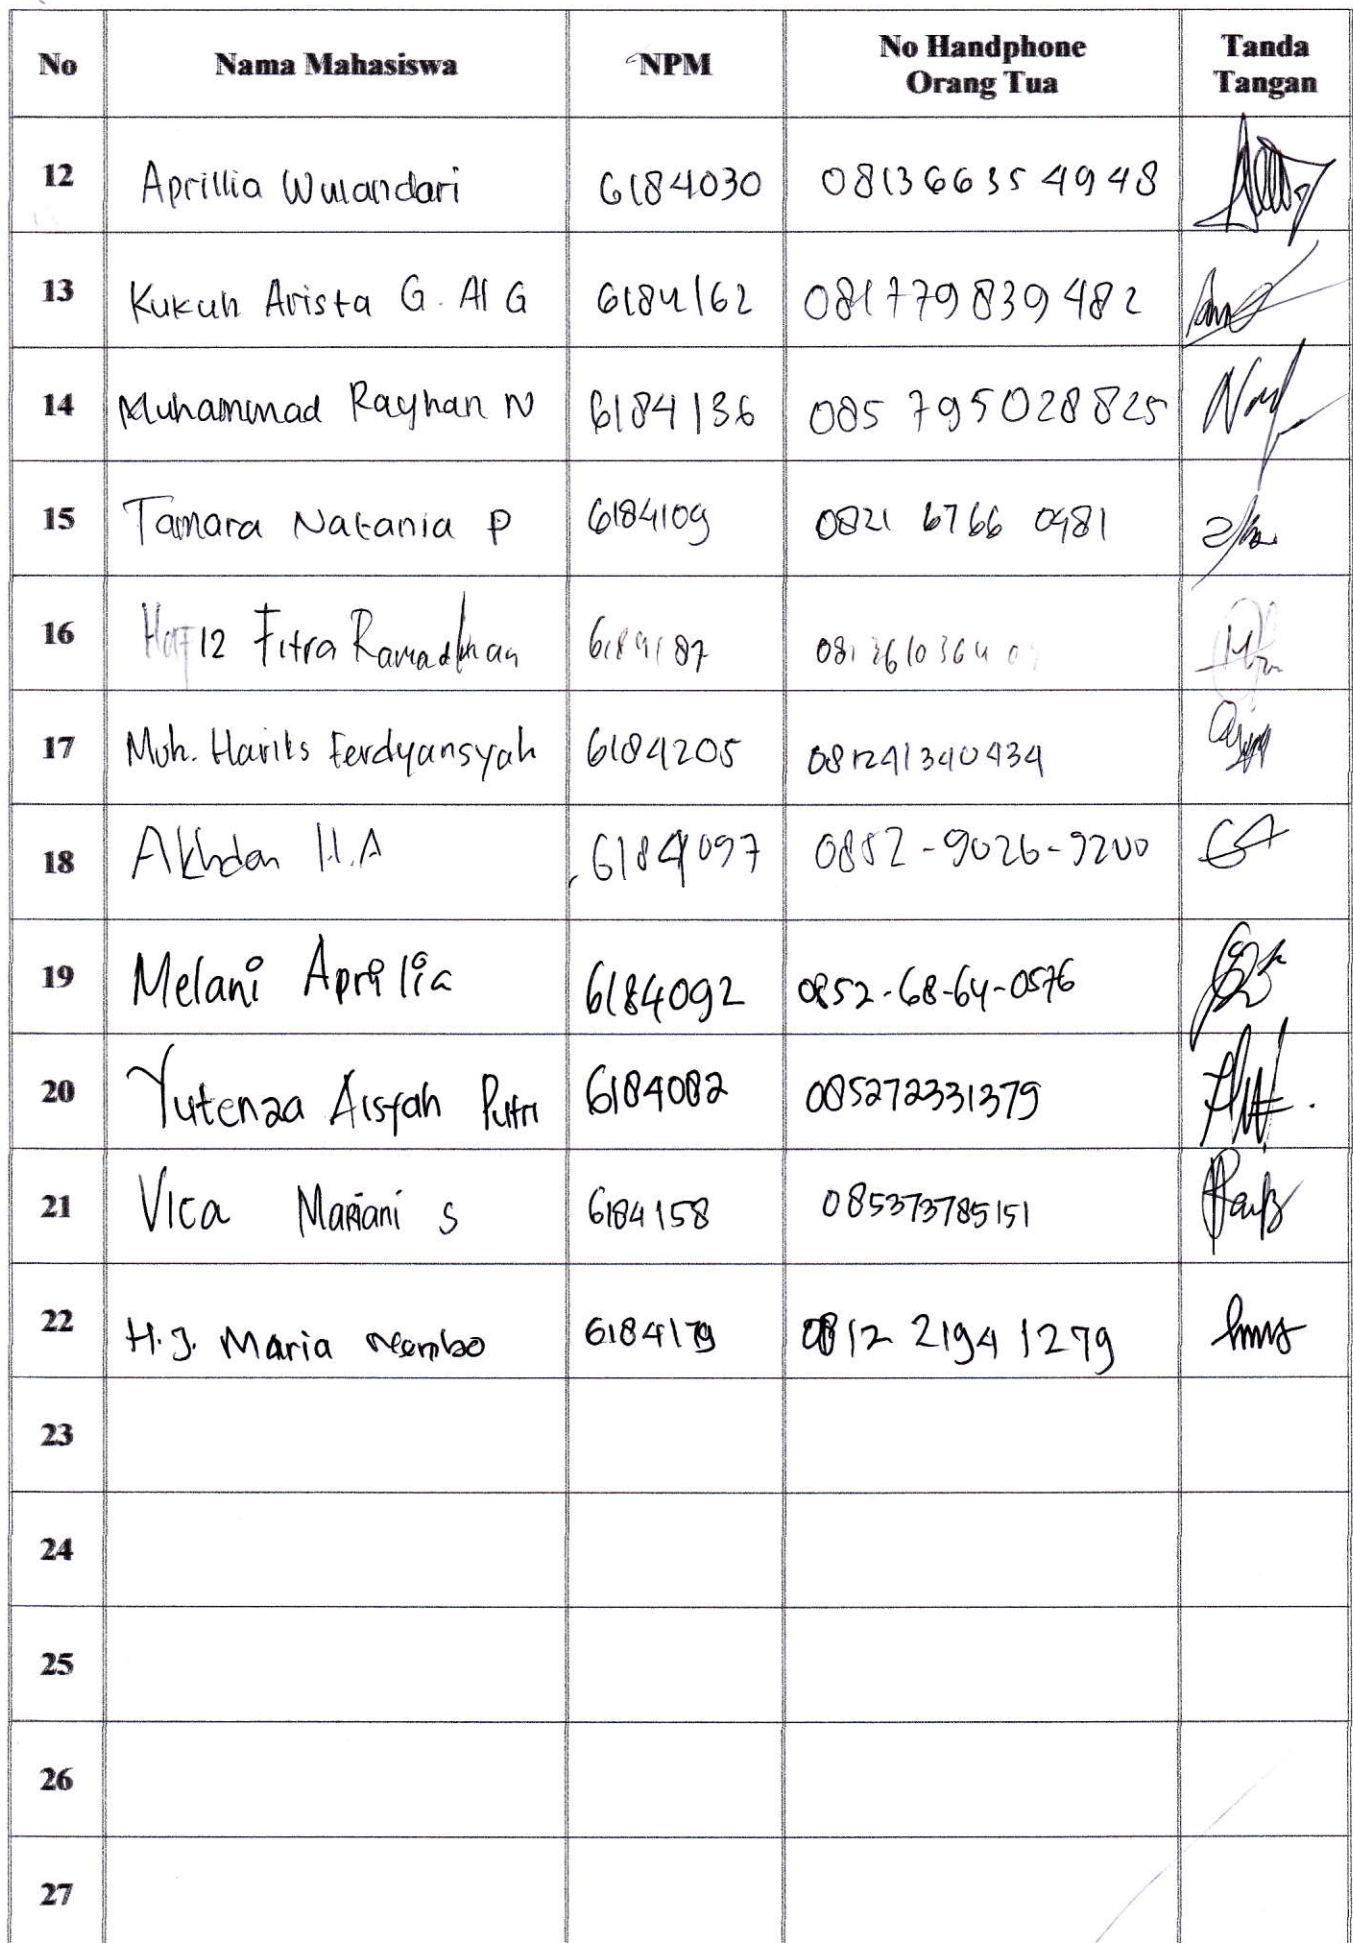 No Nama Mahasiswa NPM No Handphone Orang Tua Tanda Tangan
12 Aprillia Wulandari 6184030 081366354948
13 Kukuh Arista G. Al G 6184162 081779839482
14 Muhammad Rayhan N 6184136 085 795028825
15 Tamara Natania P 6184109 0821 6766 0981
16 Hafiz Fitra Ramadhan 6184187
17 Moh. Harits Ferdyansyah 6184205 081241340434
18 Akhdan H.A 6184097 0852-9026-9200
19 Melani Aprilia 6184092 0852-68-64-0576
20 Yutenza Aisyah Putri 6184082 085272331379
21 Vica Mariani S 6184158 085373785151
22 H.J. Maria 6184179 0812 2194 1279
23
24
25
26
27